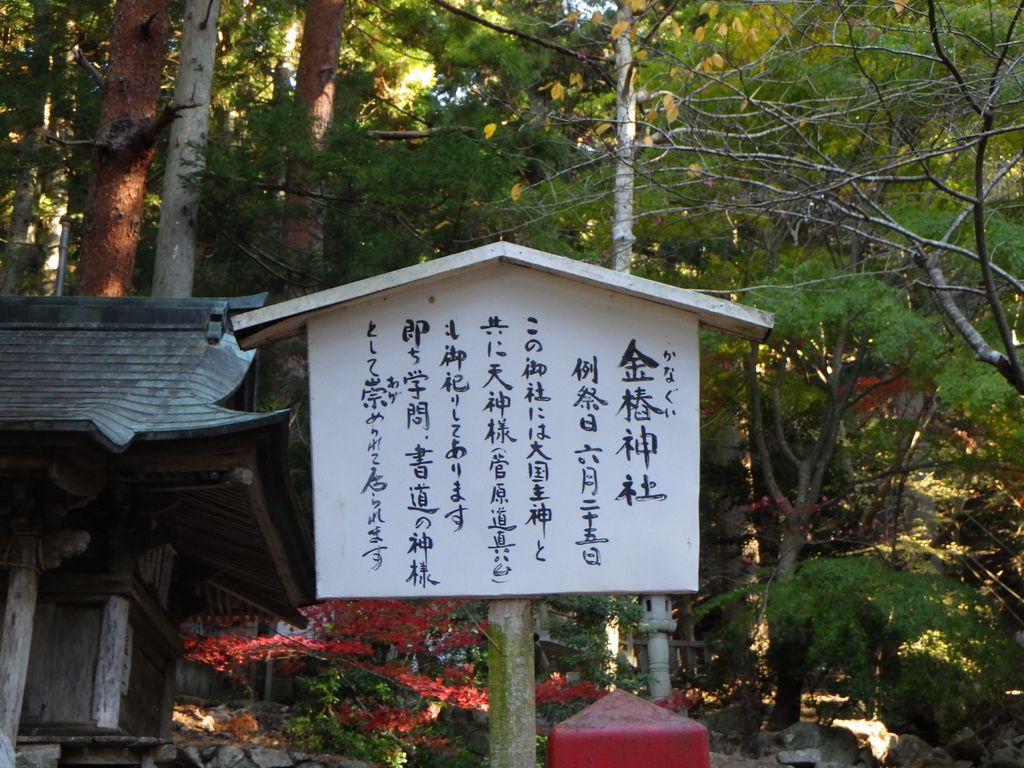 かなぐい
金樁神社
例祭日 六月二十五日
この御社には大国主神と
共に天神様(菅原道真公)
も御祀りしてあります
即ち学問、書道の神様
として崇められて居られます
あが